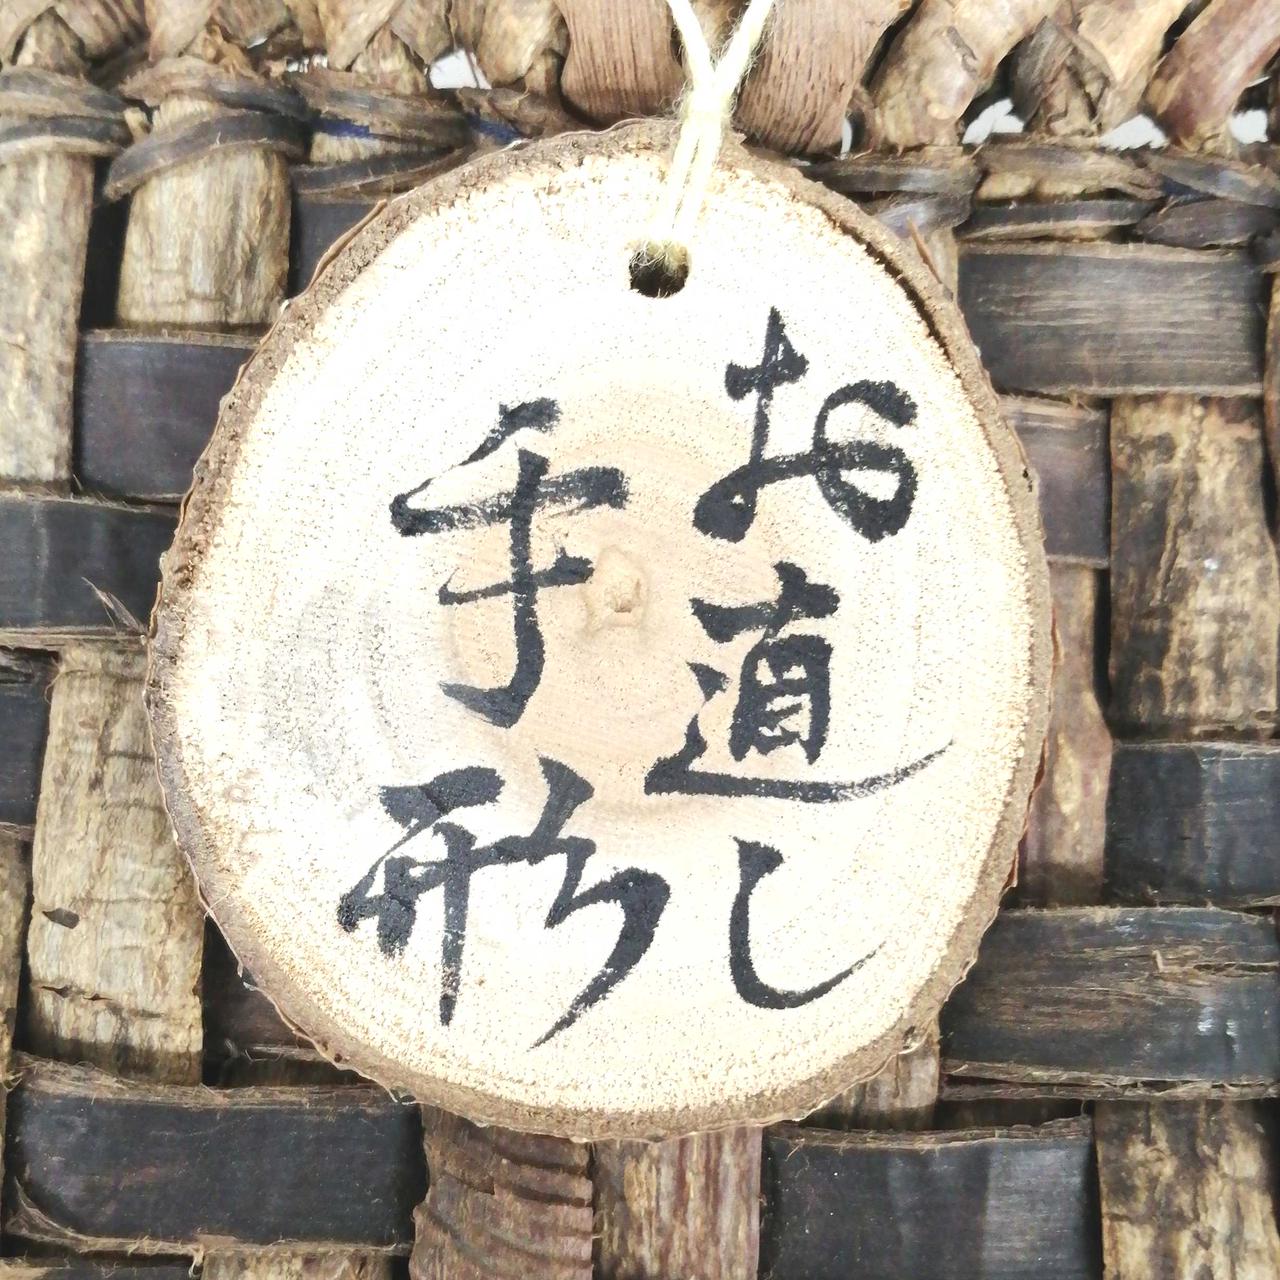 お直し
手形